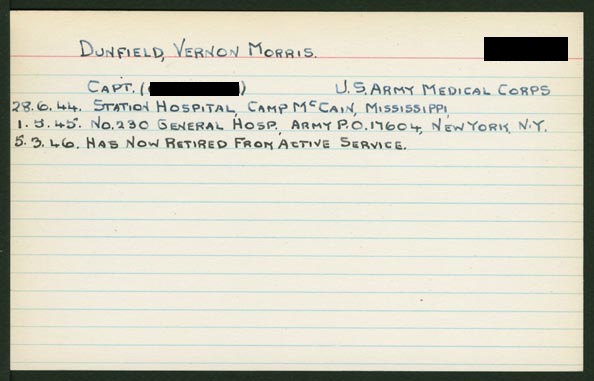 DUNFIELD, VERNON MORRIS.
CAPT. ( ) U.S. ARMY MEDICAL CORPS
28.6.44. STATION HOSPITAL, CAMP McCAIN, MISSISSIPPI,
1.5.45. No. 230 GENERAL HOSP., ARMY P.O. 17604, NEW YORK, N.Y.
5.3.46. HAS NOW RETIRED FROM ACTIVE SERVICE.